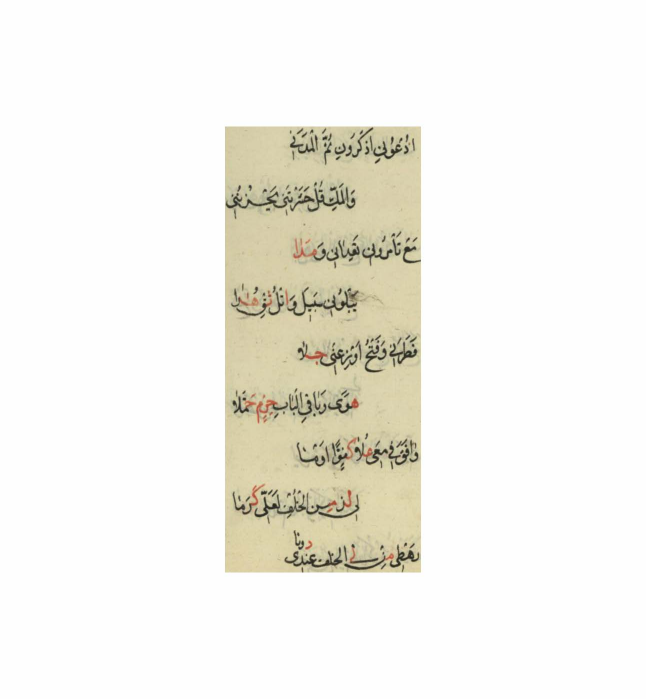 ادْعُونِي اذْكُرُونِ ثُمَّ الْمَدَنِي
وَالْمَكِّ قُلْ حَشَرْتَنِي يَحْزُنُنِي
مَعْ تَأْمُرُونِي تَعِدَانِي وَمَدَا
يَبْلُوَنِي سَبِيلِ وَاتْلُ ثِقْ هُدَا
فَطَرَنِي وَفَتْحُ أَوْزِعْنِي جَلَا
هَوَى وَبَاقِي الْبَابِ حِرْمٍ حُمِّلَا
وَافَقَ فِي مَعِي مَلَا كُفْؤًا وَمَا
لِي لُذْ مِنَ الْخُلْفِ لَعَلِّي كَرُمَا
رَهْطِي مَنْ لِي الْخُلْفِ عِنْدِي دُوِّنَا